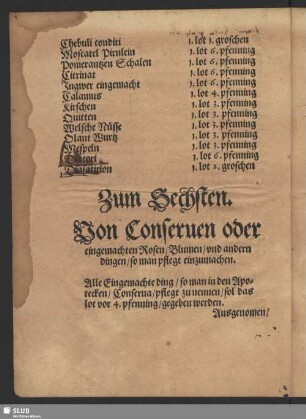 Chebuli conditi 1. lot 1. groschen
Moscatel Pirnlein 1. lot 6. pfenning
Pomerantzen Schalen 1. lot 6. pfenning
Citrinat 1. lot 6. pfenning
Ingwer eingemacht 1. lot 6. pfenning
Calamus 1. lot 4. pfenning
Kirschen 1. lot 3. pfenning
Quitten 1. lot 3. pfenning
Welsche Nüsse 1. lot 3. pfenning
Olant Wurtz 1. lot 3. pfenning
Mespeln 1. lot 3. pfenning
1. lot 6. pfenning
Diasatirion 1. lot 2. groschen
Zum Sechsten.
Von Conseruen oder
eingemachten Rosen/ Blumen/ vnd andern
dingen/ so man pflegt einzumachen.
Alle Eingemachte ding/ so man in den Apo-
tecken/ Conserua/ pflegt zu nennen/ sol das
lot vor 4. pfenning/ gegeben werden.
Ausgenomen/
SLUB